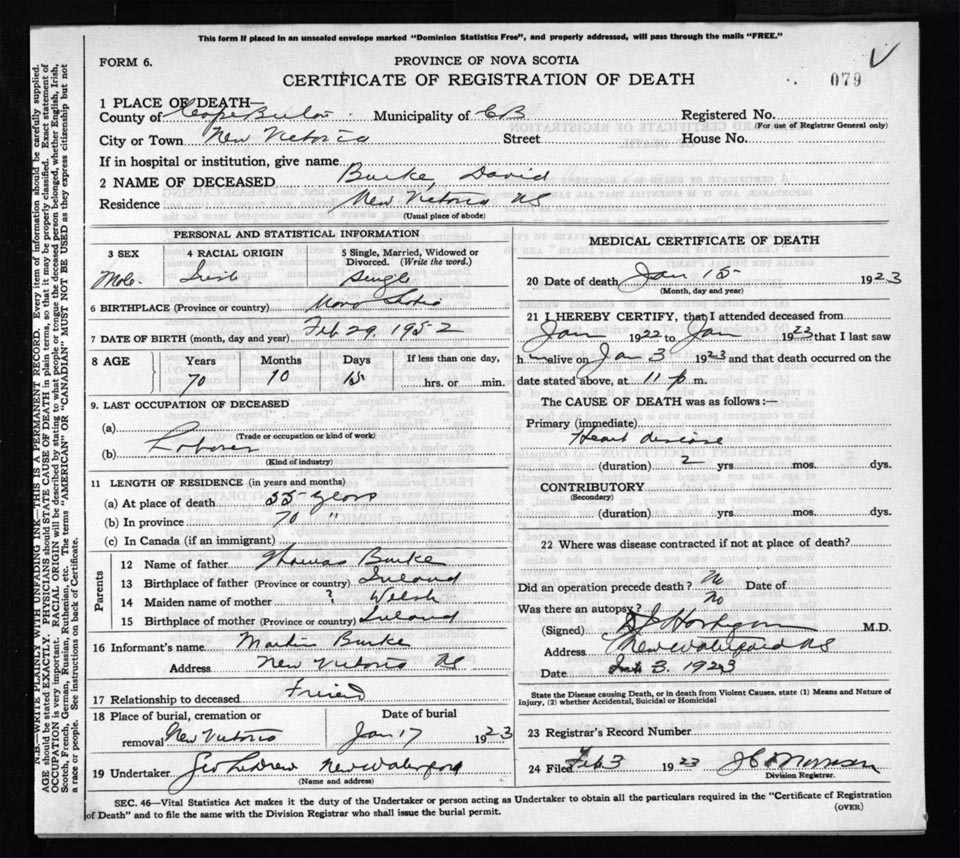 This form if placed in an unsealed envelope marked "Dominion Statistics Free", and properly addressed, will pass through the mails "FREE."
FORM 6.
PROVINCE OF NOVA SCOTIA
CERTIFICATE OF REGISTRATION OF DEATH
079
1 PLACE OF DEATH—
County of Cape Breton Municipality of CB Registered No.
(For use of Registrar General only)
City or Town New Victoria Street House No.
If in hospital or institution, give name
2 NAME OF DECEASED Burke, David
Residence New Victoria NS
(Usual place of abode)
PERSONAL AND STATISTICAL INFORMATION
3 SEX 4 RACIAL ORIGIN 5 Single, Married, Widowed or Divorced. (Write the word.)
Male. Irish Single
6 BIRTHPLACE (Province or country) Nova Scotia
7 DATE OF BIRTH (month, day and year) Feb 29, 1952
8 AGE Years Months Days If less than one day,
70 10 15 hrs. or min.
9. LAST OCCUPATION OF DECEASED
(a)
(Trade or occupation or kind of work)
(b) Laborer
(Kind of industry)
11 LENGTH OF RESIDENCE (in years and months)
(a) At place of death 55 years
(b) In province 70 "
(c) In Canada (if an immigrant)
Parents
12 Name of father Thomas Burke
13 Birthplace of father (Province or country) Ireland
14 Maiden name of mother ? Welsh
15 Birthplace of mother (Province or country) Ireland
16 Informant's name Martin Burke
Address New Victoria NS
17 Relationship to deceased Friend
18 Place of burial, cremation or removal New Victoria
Date of burial
Jan 17 1923
19 Undertaker New Waterford
(Name and address)
MEDICAL CERTIFICATE OF DEATH
20 Date of death Jan 15 1923
(Month, day and year)
21 I HEREBY CERTIFY, that I attended deceased from
Jan 1922 to Jan 1923 that I last saw
h m alive on Jan 3 1923 and that death occurred on the
date stated above, at 11 p. m.
The CAUSE OF DEATH was as follows:—
Primary (immediate)
Heart disease
(duration) 2 yrs. mos. dys.
CONTRIBUTORY
(Secondary)
(duration) yrs. mos. dys.
22 Where was disease contracted if not at place of death?
Did an operation precede death? No Date of
Was there an autopsy? No
(Signed) M.D.
Address New Waterford NS
Date 3. 1923
State the Disease causing Death, or in death from Violent Causes, state (1) Means and Nature of
Injury, (2) whether Accidental, Suicidal or Homicidal
23 Registrar's Record Number
24 Filed Feb 3 1923 J C Morrison
Division Registrar.
SEC. 46—Vital Statistics Act makes it the duty of the Undertaker or person acting as Undertaker to obtain all the particulars required in the "Certificate of Registration
of Death" and to file the same with the Division Registrar who shall issue the burial permit.
(OVER)
N.B.—WRITE PLAINLY WITH UNFADING INK—THIS IS A PERMANENT RECORD. Every item of information should be carefully supplied.
AGE should be stated EXACTLY. PHYSICIANS should STATE CAUSE OF DEATH in plain terms, so that it may be properly classified. Exact statement of
OCCUPATION is very important. RACIAL ORIGIN will be described by stating to what people or tongue the deceased person belonged, whether English, Irish,
Scotch, French, German, Russian, Ruthenian, etc. The terms "AMERICAN" OR "CANADIAN" MUST NOT BE USED as they express citizenship but not
a race or people. See instructions on back of Certificate.